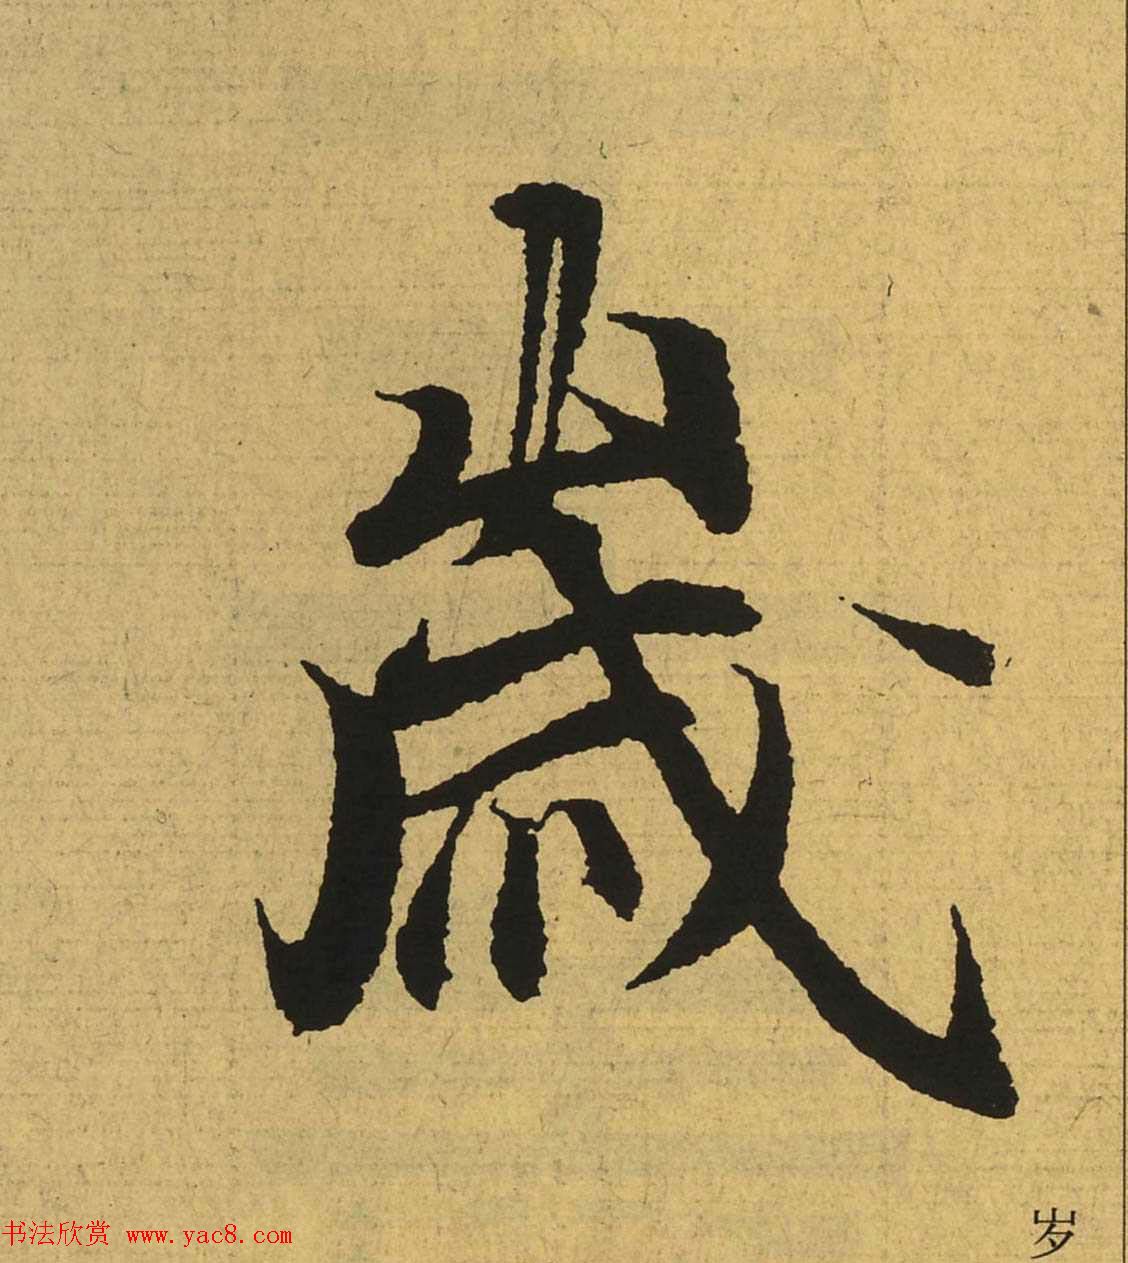 歲
岁
书法欣赏 www.yac8.com